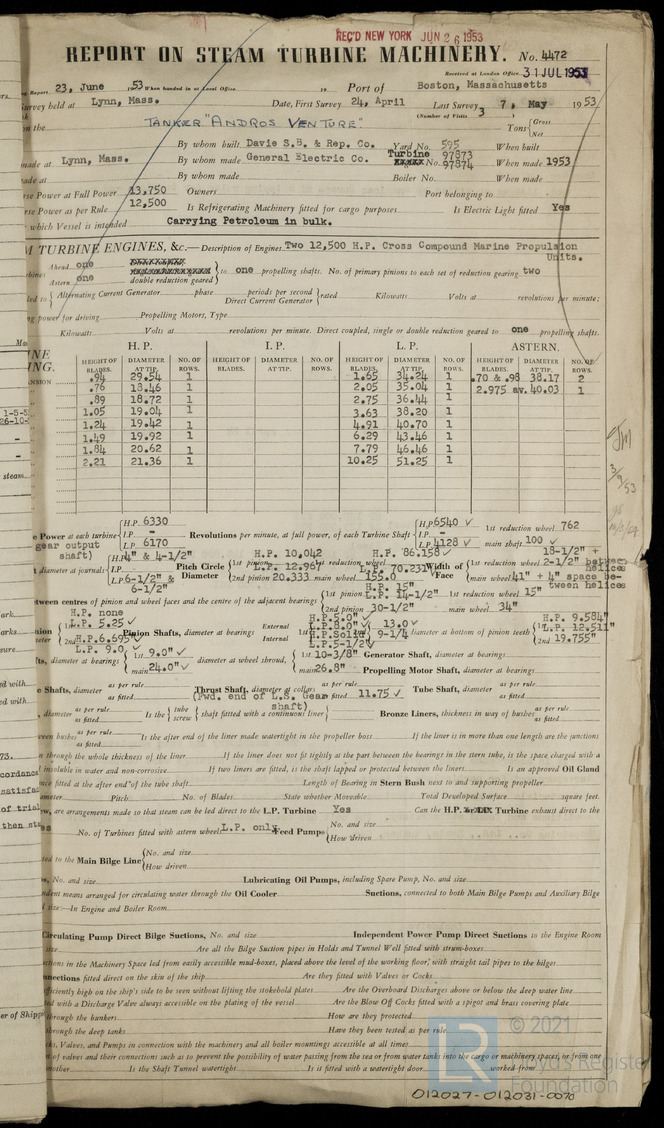 REC'D NEW YORK JUN 26 1953
REPORT ON STEAM TURBINE MACHINERY. No. 4472
Received at London Office 31 JUL 1953
Report 23, June 1953 When handed in at Local Office 19 Port of Boston, Massachusetts
Survey held at Lynn, Mass. Date, First Survey 24, April Last Survey 7, May 1953
(Number of Visits 3
on the TANKER "ANDROS VENTURE" Tons {Gross Net
By whom built Davie S.B. & Rep. Co. Yard No. 595 When built
made at Lynn, Mass. By whom made General Electric Co. Turbine No. 97873 97874 When made 1953
made at By whom made Boiler No. When made
Horse Power at Full Power 13,750 Owners Port belonging to
Horse Power as per Rule 12,500 Is Refrigerating Machinery fitted for cargo purposes Is Electric Light fitted Yes
which Vessel is intended Carrying Petroleum in bulk.
TURBINE ENGINES, &c.— Description of Engines Two 12,500 H.P. Cross Compound Marine Propulsion
Units.
Ahead one
Astern one double reduction geared} to one propelling shafts. No. of primary pinions to each set of reduction gearing two
Alternating Current Generator phase periods per second
Direct Current Generator } rated Kilowatts Volts at revolutions per minute;
power for driving Propelling Motors, Type
Kilowatts Volts at revolutions per minute. Direct coupled, single or double reduction geared to one propelling shafts.
H.P. I.P. L.P. ASTERN.
HEIGHT OF BLADES. DIAMETER AT TIP. NO. OF ROWS. HEIGHT OF BLADES. DIAMETER AT TIP. NO. OF ROWS. HEIGHT OF BLADES. DIAMETER AT TIP. NO. OF ROWS. HEIGHT OF BLADES. DIAMETER AT TIP. NO. OF ROWS.
.94 29.54 1 1.65 34.24 1 .70 & .98 38.17 2
.76 18.46 1 2.05 35.04 1 2.975 av. 40.03 1
.89 18.72 1 2.75 36.44 1
1.05 19.04 1 3.63 38.20 1
1.24 19.42 1 4.91 40.70 1
1.49 19.92 1 6.29 43.46 1
1.84 20.62 1 7.79 46.46 1
2.21 21.36 1 10.25 51.25 1
Power at each turbine {H.P. 6330 I.P. - L.P. 6170 Revolutions per minute, at full power, of each Turbine Shaft {H.P. 6540 I.P. - L.P. 4128 1st reduction wheel 762
main shaft 100
gear output shaft)
diameter at journals {H.P. 4" & 4-1/2" L.P. 6-1/2" & 6-1/2" Pitch Circle Diameter {1st pinion H.P. 10,042 L.P. 12.967 1st reduction wheel H.P. 86.158 L.P. 70.231
2nd pinion 20.333 main wheel 155.0
Width of Face {1st reduction wheel 18-1/2" + 2-1/2" between helices
main wheel 41" + 4" space between helices
between centres of pinion and wheel faces and the centre of the adjacent bearings {1st pinion H.P. 15" L.P. 14-1/2" 1st reduction wheel 15"
2nd pinion 30-1/2" main wheel 34"
H.P. none
L.P. 5.25
2nd H.P. 6.695
L.P. 9.0
Pinion Shafts, diameter at bearings External Internal H.P. 5.0" L.P. 8.0" H.P. Solid L.P. 5-1/2 13.0 9-1/4 diameter at bottom of pinion teeth {1st H.P. 9.584" L.P. 12.511"
2nd 19.755"
Shafts, diameter at bearings {1st 9.0" main 24.0" diameter at wheel shroud, {1st 10-3/8" main 26.8" Generator Shaft, diameter at bearings
Propelling Motor Shaft, diameter at bearings
Shafts, diameter as per rule as fitted Thrust Shaft, diameter at collars as per rule as fitted 11.75 Tube Shaft, diameter as per rule as fitted
(Fwd. end of L.S. Gear shaft)
diameter as per rule as fitted Is the {tube screw} shaft fitted with a continuous liner Bronze Liners, thickness in way of bushes as per rule as fitted
between bushes as per rule as fitted Is the after end of the liner made watertight in the propeller boss If the liner is in more than one length are the junctions
through the whole thickness of the liner If the liner does not fit tightly at the part between the bearings in the stern tube, is the space charged with a
insoluble in water and non-corrosive If two liners are fitted, is the shaft lapped or protected between the liners Is an approved Oil Gland
fitted at the after end of the tube shaft Length of Bearing in Stern Bush next to and supporting propeller
diameter Pitch No. of Blades State whether Moveable Total Developed Surface square feet.
are arrangements made so that steam can be led direct to the L.P. Turbine Yes Can the H.P. Turbine exhaust direct to the
No. of Turbines fitted with astern wheels L.P. only Feed Pumps {No. and size How driven
connected to the Main Bilge Line {No. and size How driven
No. and size Lubricating Oil Pumps, including Spare Pump, No. and size
independent means arranged for circulating water through the Oil Cooler Suctions, connected to both Main Bilge Pumps and Auxiliary Bilge
size:—In Engine and Boiler Room
Circulating Pump Direct Bilge Suctions, No. and size Independent Power Pump Direct Suctions to the Engine Room
size Are all the Bilge Suction pipes in Holds and Tunnel Well fitted with strum-boxes
Suctions in the Machinery Space led from easily accessible mud-boxes, placed above the level of the working floor, with straight tail pipes to the bilges
Connections fitted direct on the skin of the ship Are they fitted with Valves or Cocks
sufficiently high on the ship's side to be seen without lifting the stokehold plates Are the Overboard Discharges above or below the deep water line
fitted with a Discharge Valve always accessible on the plating of the vessel Are the Blow Off Cocks fitted with a spigot and brass covering plate
through the bunkers How are they protected
through the deep tanks Have they been tested as per rule
Cocks, Valves, and Pumps in connection with the machinery and all boiler mountings accessible at all times
of valves and their connections such as to prevent the possibility of water passing from the sea or from water tanks into the cargo or machinery spaces, or from one
another Is the Shaft Tunnel watertight Is it fitted with a watertight door worked from
© 2021
Lloyd's Register
Foundation
012027-012031-0070